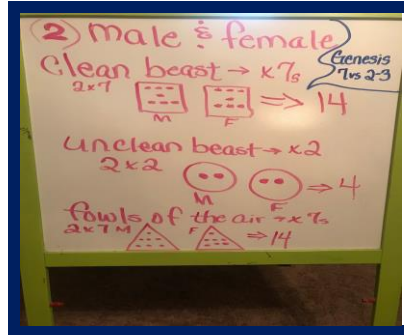 (2) male & female
Genesis
7 vs 2-3
Clean beast → x7s
2x7 ⇒ 14
M F
Unclean beast → x2
2x2 ⇒ 4
M F
fowls of the air → x7s
2x7 M F ⇒ 14